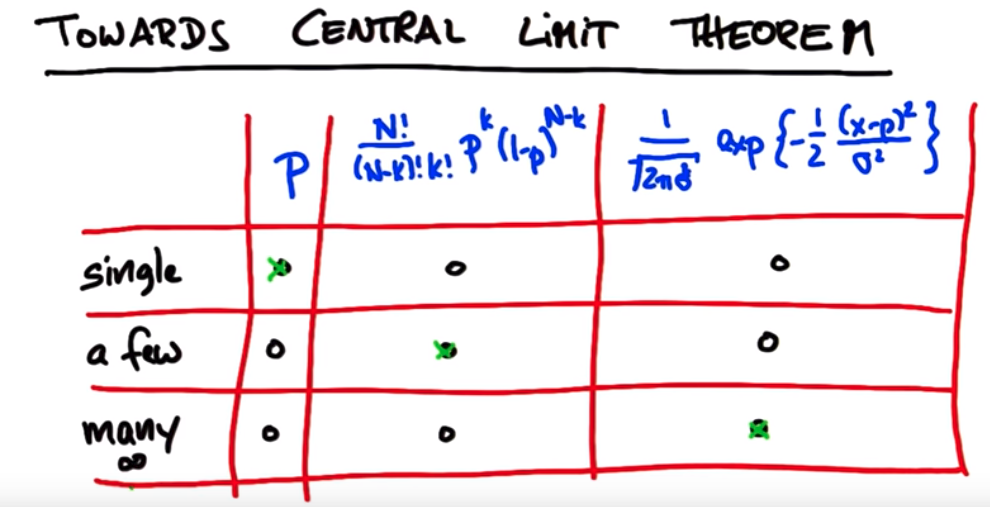 TOWARDS CENTRAL LIMIT THEOREM
P N!/((N-k)!k!) p^k (1-p)^{N-k} 1/√(2πσ) exp{-1/2 (x-p)²/σ²}
single
a few
many
∞